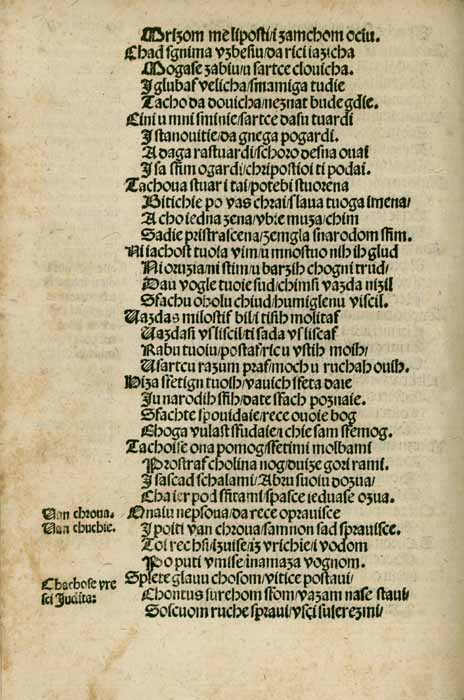 Mrizom me liposti/i zamchom ociu.
Chad sgnima vzbesiu/da rici iazicha
Mogase zabiu/u sartce clouicha.
I glubaf velicha/smamiga tudie
Tacho da douicha/neznat bude gdie.
Cini u mni sminie/sartce dasu tuardi
I stanouitie/da gnega pogardi.
A daga rastuardi/schoro desna ouai
I sa sfim ogardi/chripostioi ti podai.
Tachoua stuar i tai/potebi stuorena
Bitichie po vas chrai/slaua tuoga imena/
A cho iedna zena/vbie muza/chim
Sadie pristrascena/zemgla snarodom sfim.
Ni iachost tuoia vim/u mnostuo nih ih glud
Ni oruzia/ni stim/u barzih chogni trud/
Dau vogle tuoie sud/chimsi vazda nizil
Sfachu oholu chiud/humiglenu viscil.
Uazdas milostif bil/i tisih molitaf
Uazdasi vsliscil/ti sada vsliscaf
Rabu tuoiu/postaf/ric u vstih moih/
U sartcu razum praf/moch u ruchah ouih.
Niza sfetign tuoih/vauich sfeta daie
I u narodih sfih/date sfach poznaie.
Sfachte spouidaie/rece ouoie bog
Choga vulast sfudaie/i chie sam sfemog.
Tachoise ona pomog/sfetimi molbami
Prostraf cholina nog/duize gori rami.
I sascad schalami/Abru suoiu dozua/
Cha ier pod sfitami/spasce ieduase ozua.
Onaiu nepsoua/da rece oprauisce
I poiti van chroua/samnon sad sprauisce.
Toi rechsi/izuise/iz vrichie/i vodom
Po puti vmise/inamaza vognom.
Van chroua.
Van chuchie.
Splete glauu chosom/vitice postaui/
Chontus surehom sfom/vazam nase staui/
Soscuom ruche spraui/vsci suserezmi/
Chachose vre
sci Judita: